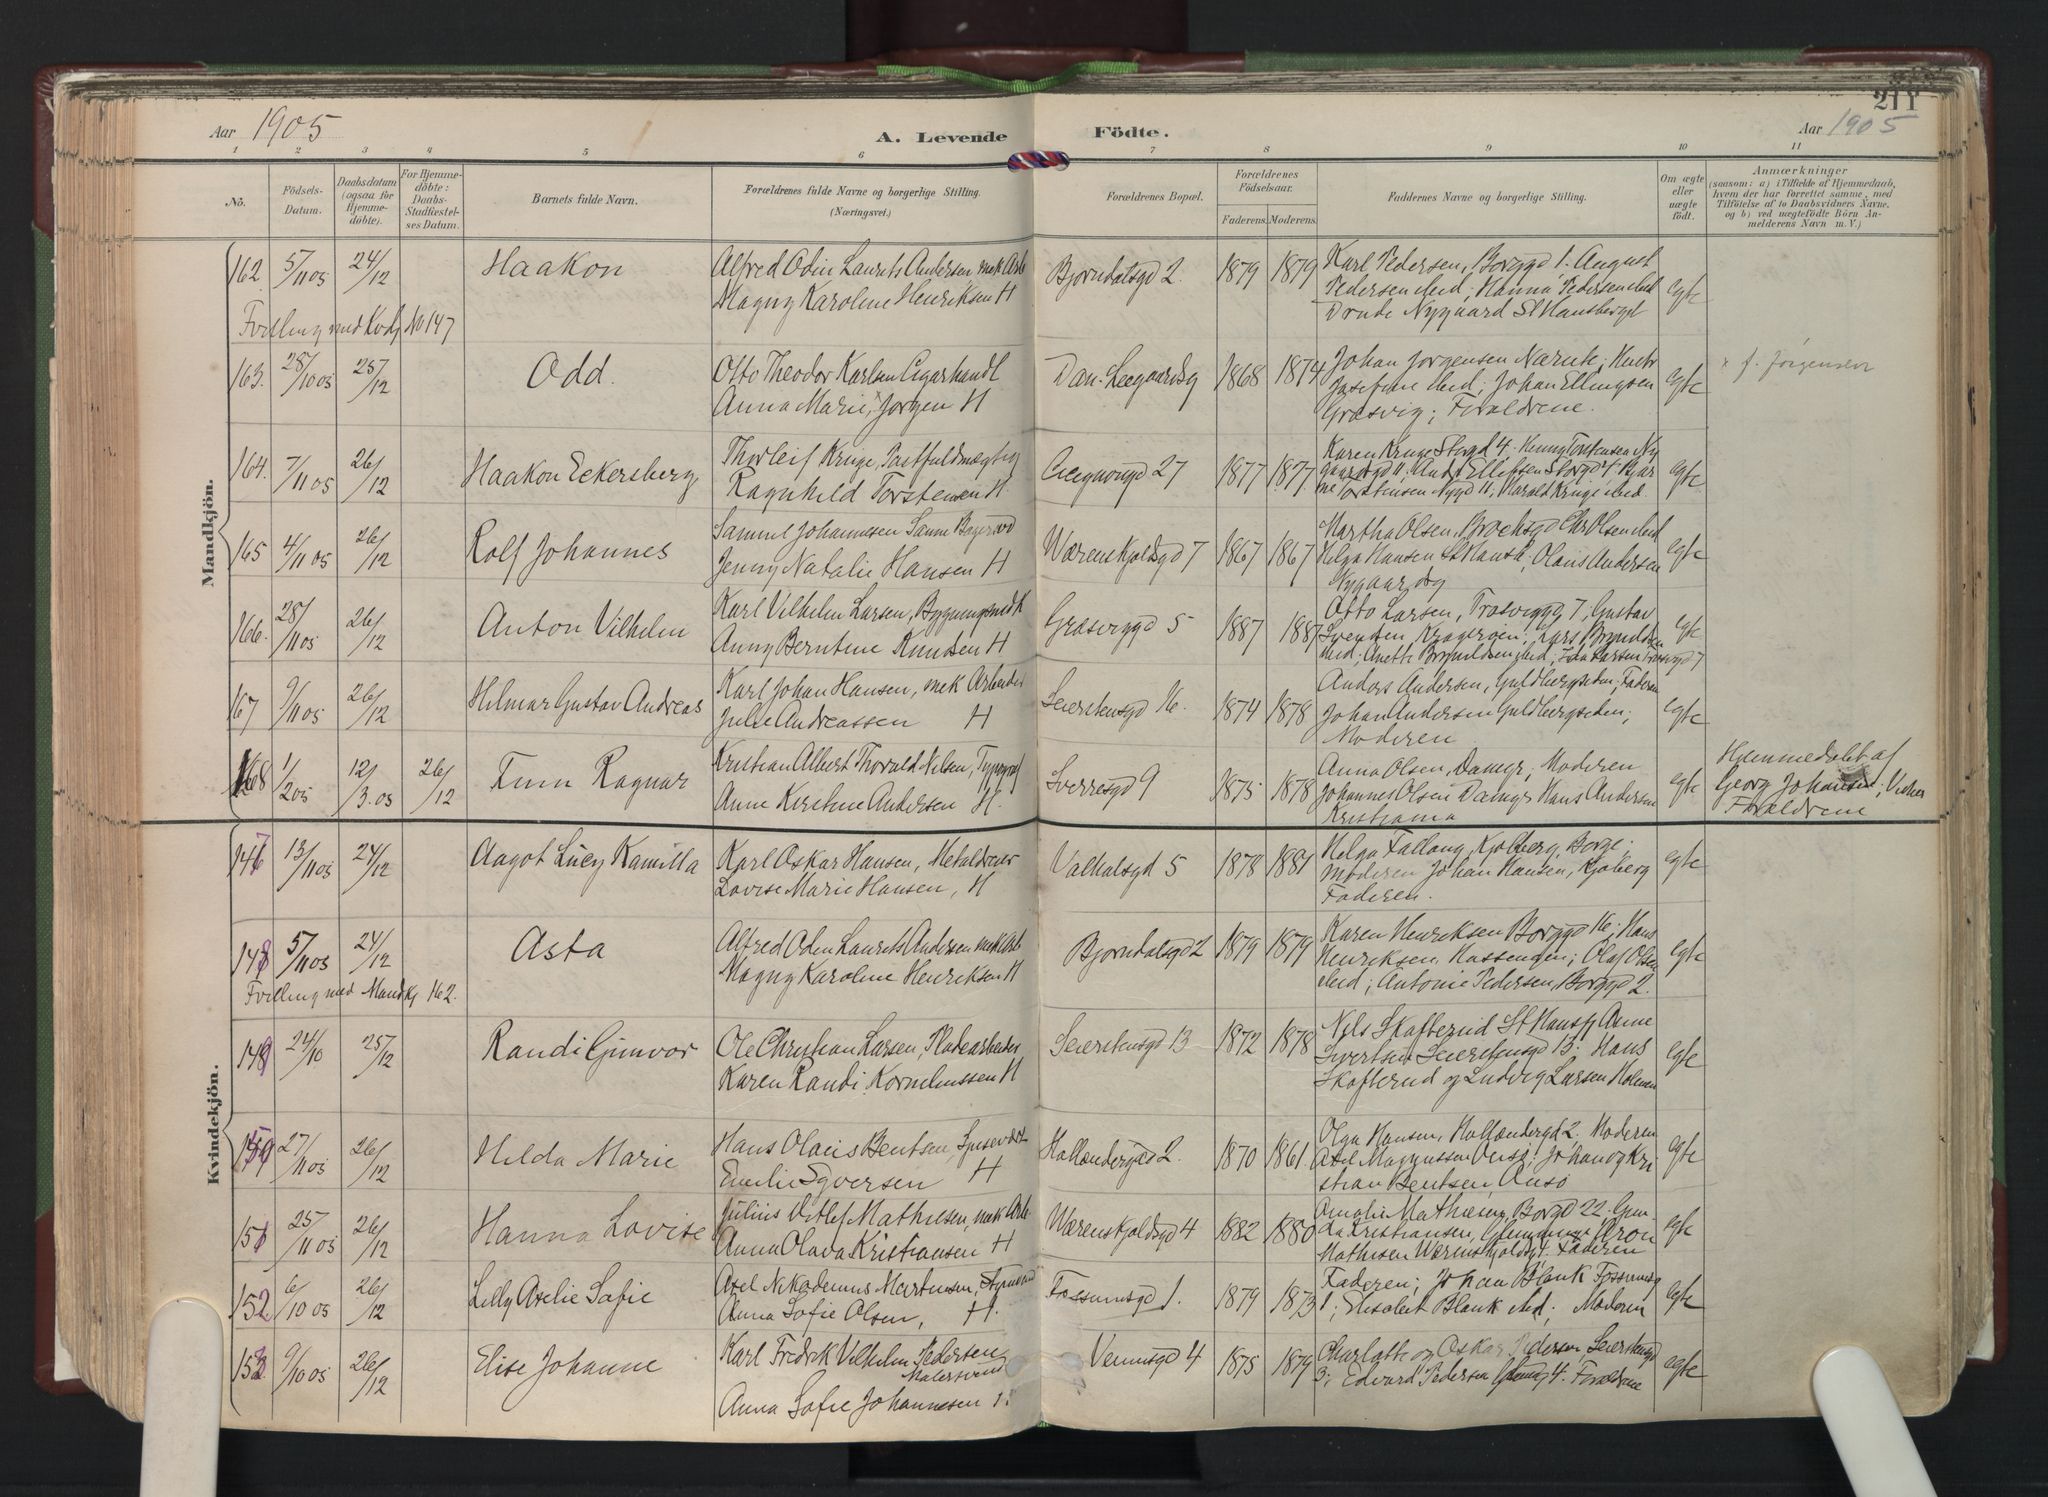 211
Aar 1905
A. Levende Födte.
Aar 1905
1 2 3 4 5 6 7 8 9 10 11
Nô.
Födsels-Datum.
Daabsdatum (ogsaa for Hjemmedöbte).
For Hjemmedöbte: Daabs-Stadfæstelses Datum.
Barnets fulde Navn.
Forældrenes fulde Navne og borgerlige Stilling.
(Næringsvei.)
Forældrenes Bopæl.
Forældrenes Födselsaar.
Faderens. Moderens.
Faddernes Navne og borgerlige Stilling.
Om ægte eller uægte födt.
Anmærkninger
(saasom: a) i Tilfælde af Hjemmedaab, hvem der har forrettet samme, med Tilföielse af to Daabsvidners Navne, og b) ved uægtefödte Börn Anmelderens Navn m. V.)
Mandkjön.
162. 5/11 05 24/12 Haakon
Alfred Odin Laurits Andersen mek Arb
Magny Karoline Henriksen H
Bjorndalsgd 2. 1879 1879
Karl Pedersen, Borggd 1. August
Pedersen ibid; Hanna Pedersen ibid
Drude Nygaard St Hansberget
egte
Tvilling med Kvkj No 147
163. 28/10 05 25/12 Odd.
Otto Theodor Karlsen Cigarhandl
Anna Marie, Jørgen H
Dan. Leegaardsg 1868 1874
Johan Jørgensen Nærute;
Josefine ibid; Johan Ellingsen
Græsvig; Forældrene.
egte
x f. Jørgensen
164. 7/11 05 26/12 Haakon Eckersberg
Thorleif Kruge, Postfuldmægtig
Ragnhild Torstensen H.
27 1877 1877
Karen Kruge Storgd 4. Henny Torstensen Ny
gaardsgd 11. Andr Ellefsen Storgd 4. Bjar
ne Torstensen Nygd 11; Harald Kruge ibid.
egte
165 4/11 05 26/12 Rolf Johannes
Samuel Johannesen Sanne
Jenny Natalie Hansen H
Wærenskjoldsgd 7 1867 1867
Martha Olsen, Brochsgd Chr Olsen ibid
Helga Hansen St Hansb. Olaus Andersen
Nygaardsg
egte
166. 28/11 05 26/12 Anton Vilhelm
Karl Vilhelm Larsen, Bygningssnedk
Anny Berntine Knudsen H
Græsviggd 5 1887 1887
Otto Larsen, Trosviggd 7, Gustav
Svendsen Kragerøen; Lars Brynildsen
ibid; Anette Brynildsen ibid; Ida Larsen Trosvgd 7
egte
167 9/11 05 26/12 Hilmar Gustav Andreas
Karl Johan Hansen, mek Arbeider
Julie Andreassen H
Seierstensgd 16. 1874 1878
Anders Andersen, Guldbergsiden; Faderen
Johan Andersen Guldbergsiden;
Moderen
egte
168 1/2 05 12/3.05 26/12 Finn Ragnar
Kristian Albert Thorvald Nilsen, Typograf
Anne Kirstine Andersen H.
Sverresgd 9 1875 1878
Anna Olsen, Damgr; Moderen
Johannes Olsen Damgr Hans Andersen
Kristiania
egte
Hjemmedøbt af
Georg Johansen; Vidner
Forældrene
Kvindekjön.
147 13/11 05 24/12 Aagot Lucy Kamilla
Karl Oskar Hansen, Metaldreier
Lovise Marie Hansen, H
Valhalsgd 5 1878 1881
Helga Fallang, Kjølberg, Borge;
Moderen Johan Hansen, Kjøberg
Faderen.
egte
148 5/11 05 24/12 Asta
Alfred Oden Laurits Andersen mek Arb
Magny Karoline Henriksen H
Bjorndalsgd 2 1879 1879
Karen Henriksen Borggd 16; Hans
Henriksen, Hassengen; Olaf Olsen
ibid; Antonie Pedersen, Borggd 2.
egte
Tvilling med Mandkj 162.
149 24/10 25/12 Randi Gunvor
Ole Christian Larsen, Pladearbeider
Karen Randi Korneliussen H
Seierstensgd 13 1872 1878
Nils Skafterud St Hansfj Anne
Sivertsen Seierstensgd 13; Hans
Skafterud og Ludvig Larsen Holmen
egte
150 27/11 05 26/12 Hilda Marie
Hans Olaus Bentsen, Spisevært
Emilie Syversen H
Hollændergd 2. 1870 1861.
Olga Hansen, Hollændergd 2. Moderen
Axel Magnussen Onsø; Johan og Kri
stian Bentsen, Onsø
egte
151 25/11 05 26/12 Hanna Lovise
Julius Detlef Mathisen, mek Arb
Anna Olava Kristiansen H
Wærenskjoldsgd 4 1882 1880
Amalie Mathisen, Borgd 22. Gun
da Kristiansen, Glemminge; Aron
Mathisen Wærenskjoldsgd 4. Faderen
egte
152 6/10 05 26/12 Lilly Axelie Sofie
Axel Nikodemus Martinsen,
Anna Sofie Olsen, H.
Fossumsgd 1. 1879 1873
Faderen; Johan Blank Fossumsg
1; Elisabet Blank ibid; Moderen
egte
153 9/10 05 26/12 Elise Johanne
Karl Fredrik Vilhelm Pedersen
Malersvend
Anna Sofie Johannesen H
Vennisgd 4 1875 1879
Charlotte og Oskar Pedersen, Seierstensgd
3; Edvard Pedersen 4. Forældrene
egte